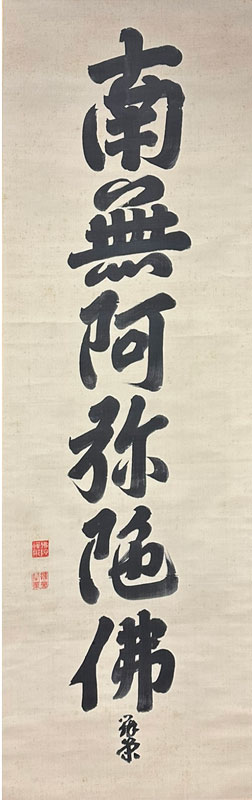 南無阿弥陁佛